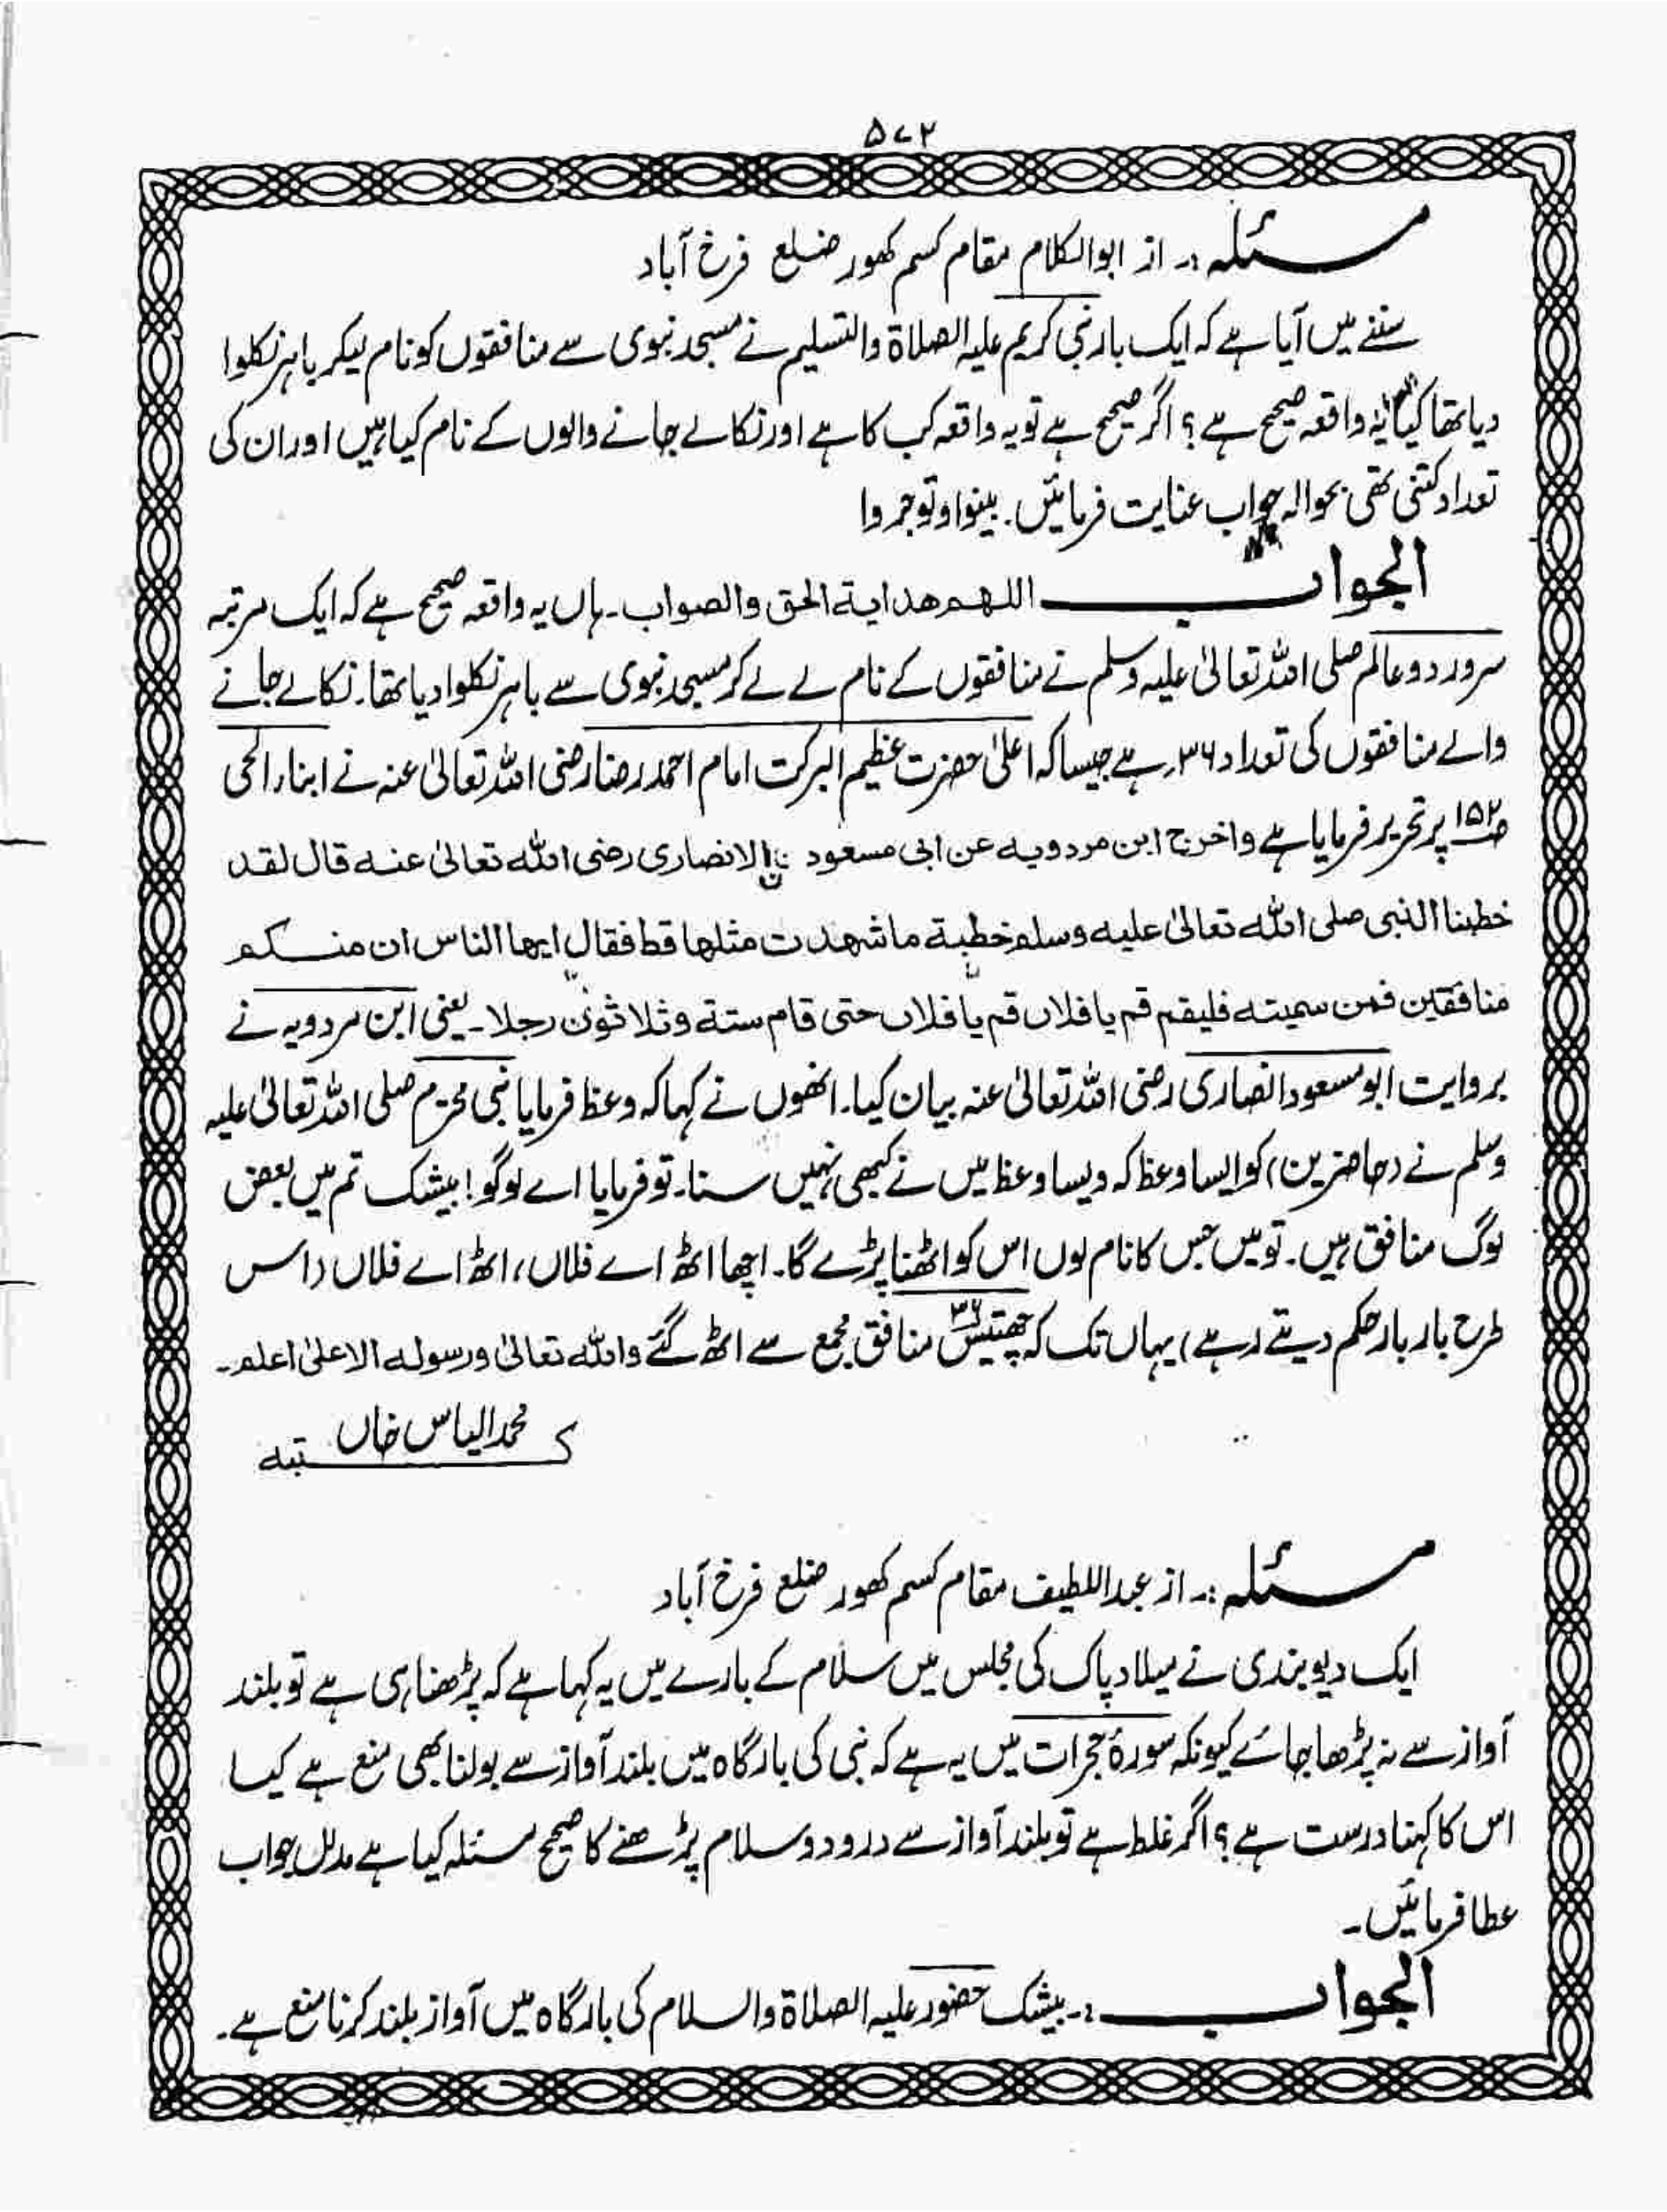 ۵۷۲
مسئلہ :۔ از ابوالکلام مقام کسم کھور ضلع فرخ آباد
سننے میں آیا ہے کہ ایک بار نبی کریم علیہ الصلاۃ والتسلیم نے مسجد نبوی سے منافقوں کو نام لیکر باہر نکلوا
دیا تھا کیا یہ واقعہ صحیح ہے ؟ اگر صحیح ہے تو یہ واقعہ کب کا ہے اور نکالے جانے والوں کے نام کیا ہیں اور ان کی
تعداد کتنی تھی بحوالہ جواب عنایت فرمائیں. بینوا وتوجروا
الجواب اللهم هداية الحق والصواب۔ ہاں یہ واقعہ صحیح ہے کہ ایک مرتبہ
سرور دو عالم صلی اللہ تعالیٰ علیہ وسلم نے منافقوں کے نام لے لے کر مسجد نبوی سے باہر نکلوا دیا تھا۔ نکالے جانے
والے منافقوں کی تعداد ۳۶ ہے جیسا کہ اعلیٰ حضرت عظیم البرکت امام احمد رضا رضی اللہ تعالیٰ عنہ نے ابناء الحی
ص۱۵۲ پر تحریر فرمایا ہے واخرج ابن مردويه عن ابی مسعود الانصاری رضی الله تعالیٰ عنه قال لقد
خطبنا النبی صلی الله تعالیٰ عليه وسلم خطبة ما شهدت مثلها قط فقال ايها الناس ان منكم
منافقين فمن سميته فليقم قم يا فلاں قم يا فلاں حتی قام ستة وثلاثون رجلا۔ یعنی ابن مردویہ نے
بروایت ابو مسعود انصاری رضی اللہ تعالیٰ عنہ بیان کیا۔ انھوں نے کہا کہ وعظ فرمایا نبی محترم صلی اللہ تعالیٰ علیہ
وسلم نے (حاضرین) کو ایسا وعظ کہ ویسا وعظ میں نے کبھی نہیں سنا۔ تو فرمایا اے لوگو! بیشک تم میں بعض
لوگ منافق ہیں۔ تو میں جس کا نام لوں اس کو اٹھنا پڑے گا۔ اچھا اٹھ اے فلاں، اٹھ اے فلاں (اس
طرح بار بار حکم دیتے رہے) یہاں تک کہ چھتیس ۳۶ منافق مجمع سے اٹھ گئے والله تعالیٰ ورسوله الاعلیٰ اعلم۔
کتبہ محمد الیاس خاں
مسئلہ :۔ از عبداللطیف مقام کسم کھور ضلع فرخ آباد
ایک دیوبندی نے میلاد پاک کی مجلس میں سلام کے بارے میں یہ کہا ہے کہ پڑھنا ہی ہے تو بلند
آواز سے نہ پڑھا جائے کیونکہ سورۂ حجرات میں یہ ہے کہ نبی کی بارگاہ میں بلند آواز سے بولنا بھی منع ہے کیا
اس کا کہنا درست ہے ؟ اگر غلط ہے تو بلند آواز سے درود و سلام پڑھنے کا صحیح مسئلہ کیا ہے مدلل جواب
عطا فرمائیں۔
الجواب :۔ بیشک حضور علیہ الصلاۃ والسلام کی بارگاہ میں آواز بلند کرنا منع ہے۔